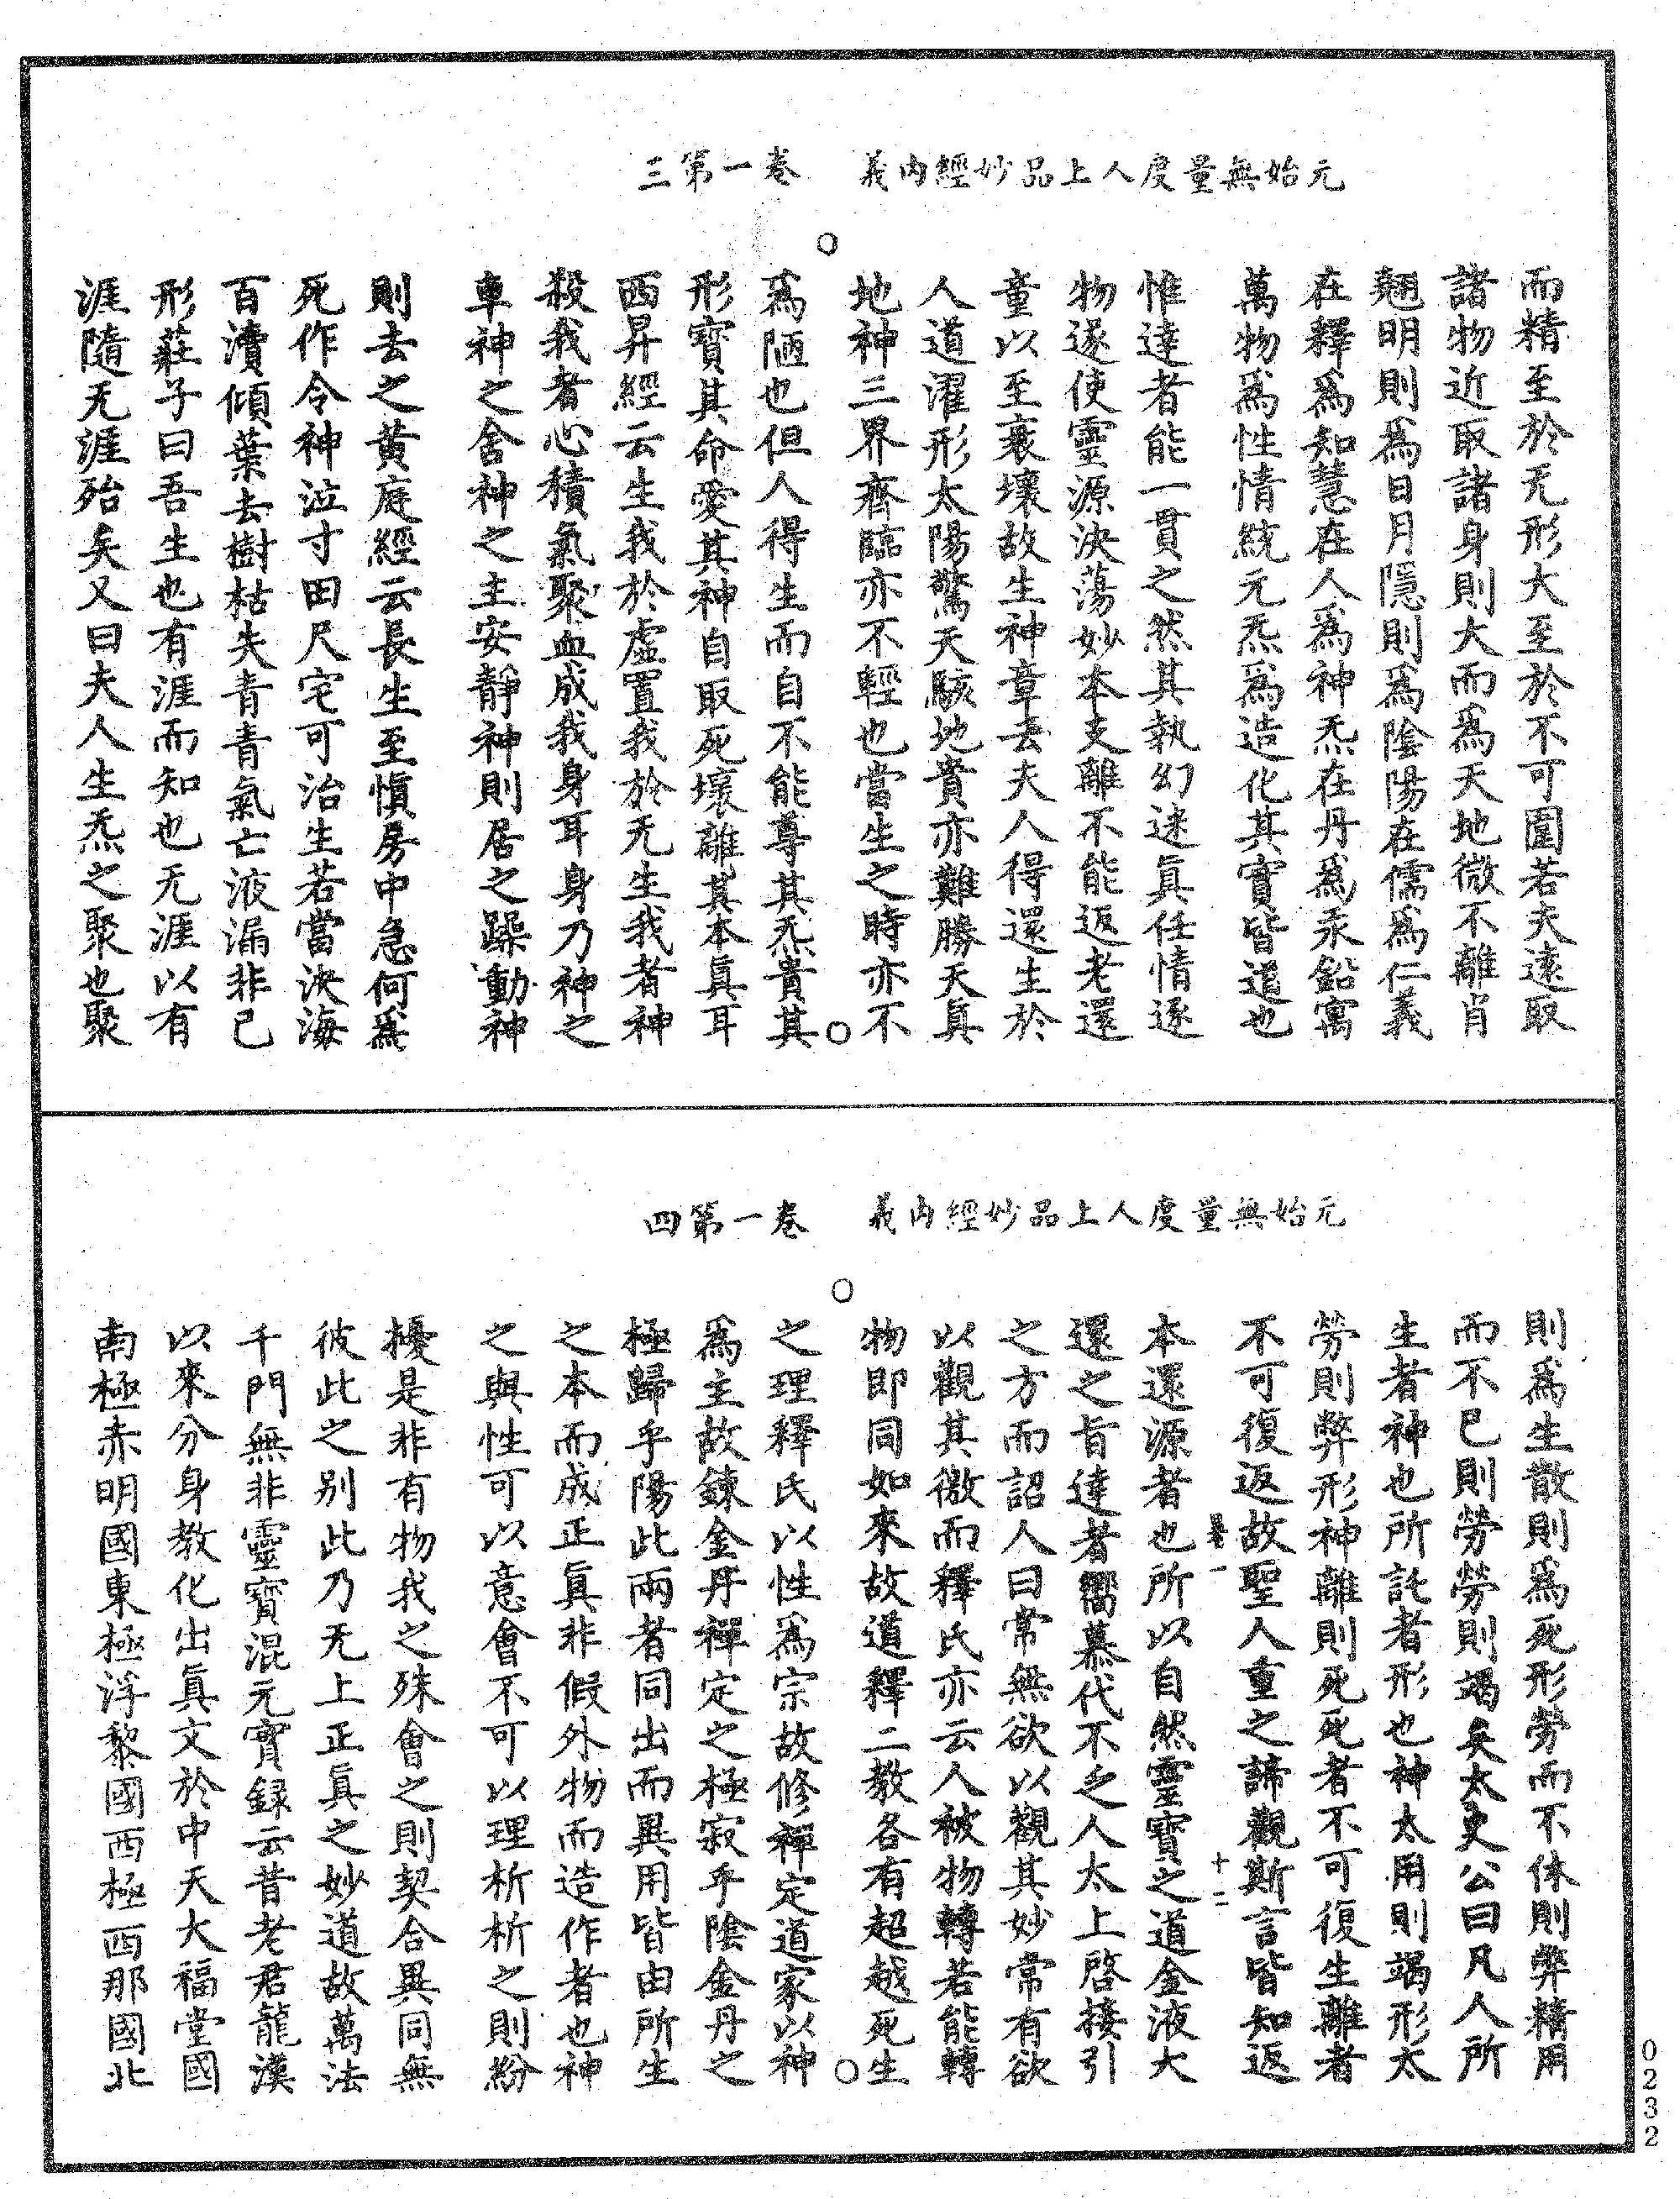 元始無量度人上品妙經內義　卷一第三
而精至於无形大至於不可圍若夫遠取
諸物近取諸身則大而為天地微不離肖
翹明則為日月隱則為陰陽在儒為仁義
在釋為知慧在人為神炁在丹為汞鉛寓
萬物為性情統元炁為造化其實皆道也
惟達者能一貫之然其執幻迷眞任情逐
物遂使靈源決蕩妙本支離不能返老還
童以至衰壞故生神章云夫人得還生於
人道濯形太陽驚天駭地貴亦難勝天眞
地神三界齊臨亦不輕也當生之時亦不
為陋也但人得生而自不能尊其炁貴其
形寶其命愛其神自取死壞離其本眞耳
西昇經云生我於虛置我於无生我者神
殺我者心積氣聚血成我身耳身乃神之
車神之舍神之主安靜神則居之躁動神
則去之黃庭經云長生至愼房中急何為
死作令神泣寸田尺宅可治生若當決海
百瀆傾葉去樹枯失青青氣亡液漏非己
形莊子曰吾生也有涯而知也无涯以有
涯隨无涯殆矣又曰夫人生炁之聚也聚
元始無量度人上品妙經內義　卷一第四
則為生散則為死形勞而不休則弊精用
而不已則勞勞則竭矣太史公曰凡人所
生者神也所託者形也神太用則竭形太
勞則弊形神離則死死者不可復生離者
不可復返故聖人重之諦觀斯言皆知返
十二
本還源者也所以自然靈寶之道金液大
還之旨達者嚮慕代不乏人太上啓接引
之方而詔人曰常無欲以觀其妙常有欲
以觀其徼而釋氏亦云人被物轉若能轉
物即同如來故道釋二教各有超越死生
之理釋氏以性為宗故修禪定道家以神
為主故鍊金丹禪定之極寂乎陰金丹之
極歸乎陽此兩者同出而異用皆由所生
之本而成正眞非假外物而造作者也神
之與性可以意會不可以理析析之則紛
擾是非有物我之殊會之則契合異同無
彼此之别此乃无上正眞之妙道故萬法
千門無非靈寶混元實録云昔老君龍漢
以來分身教化出眞文於中天大福堂國
南極赤明國東極浮黎國西極西那國北
0232